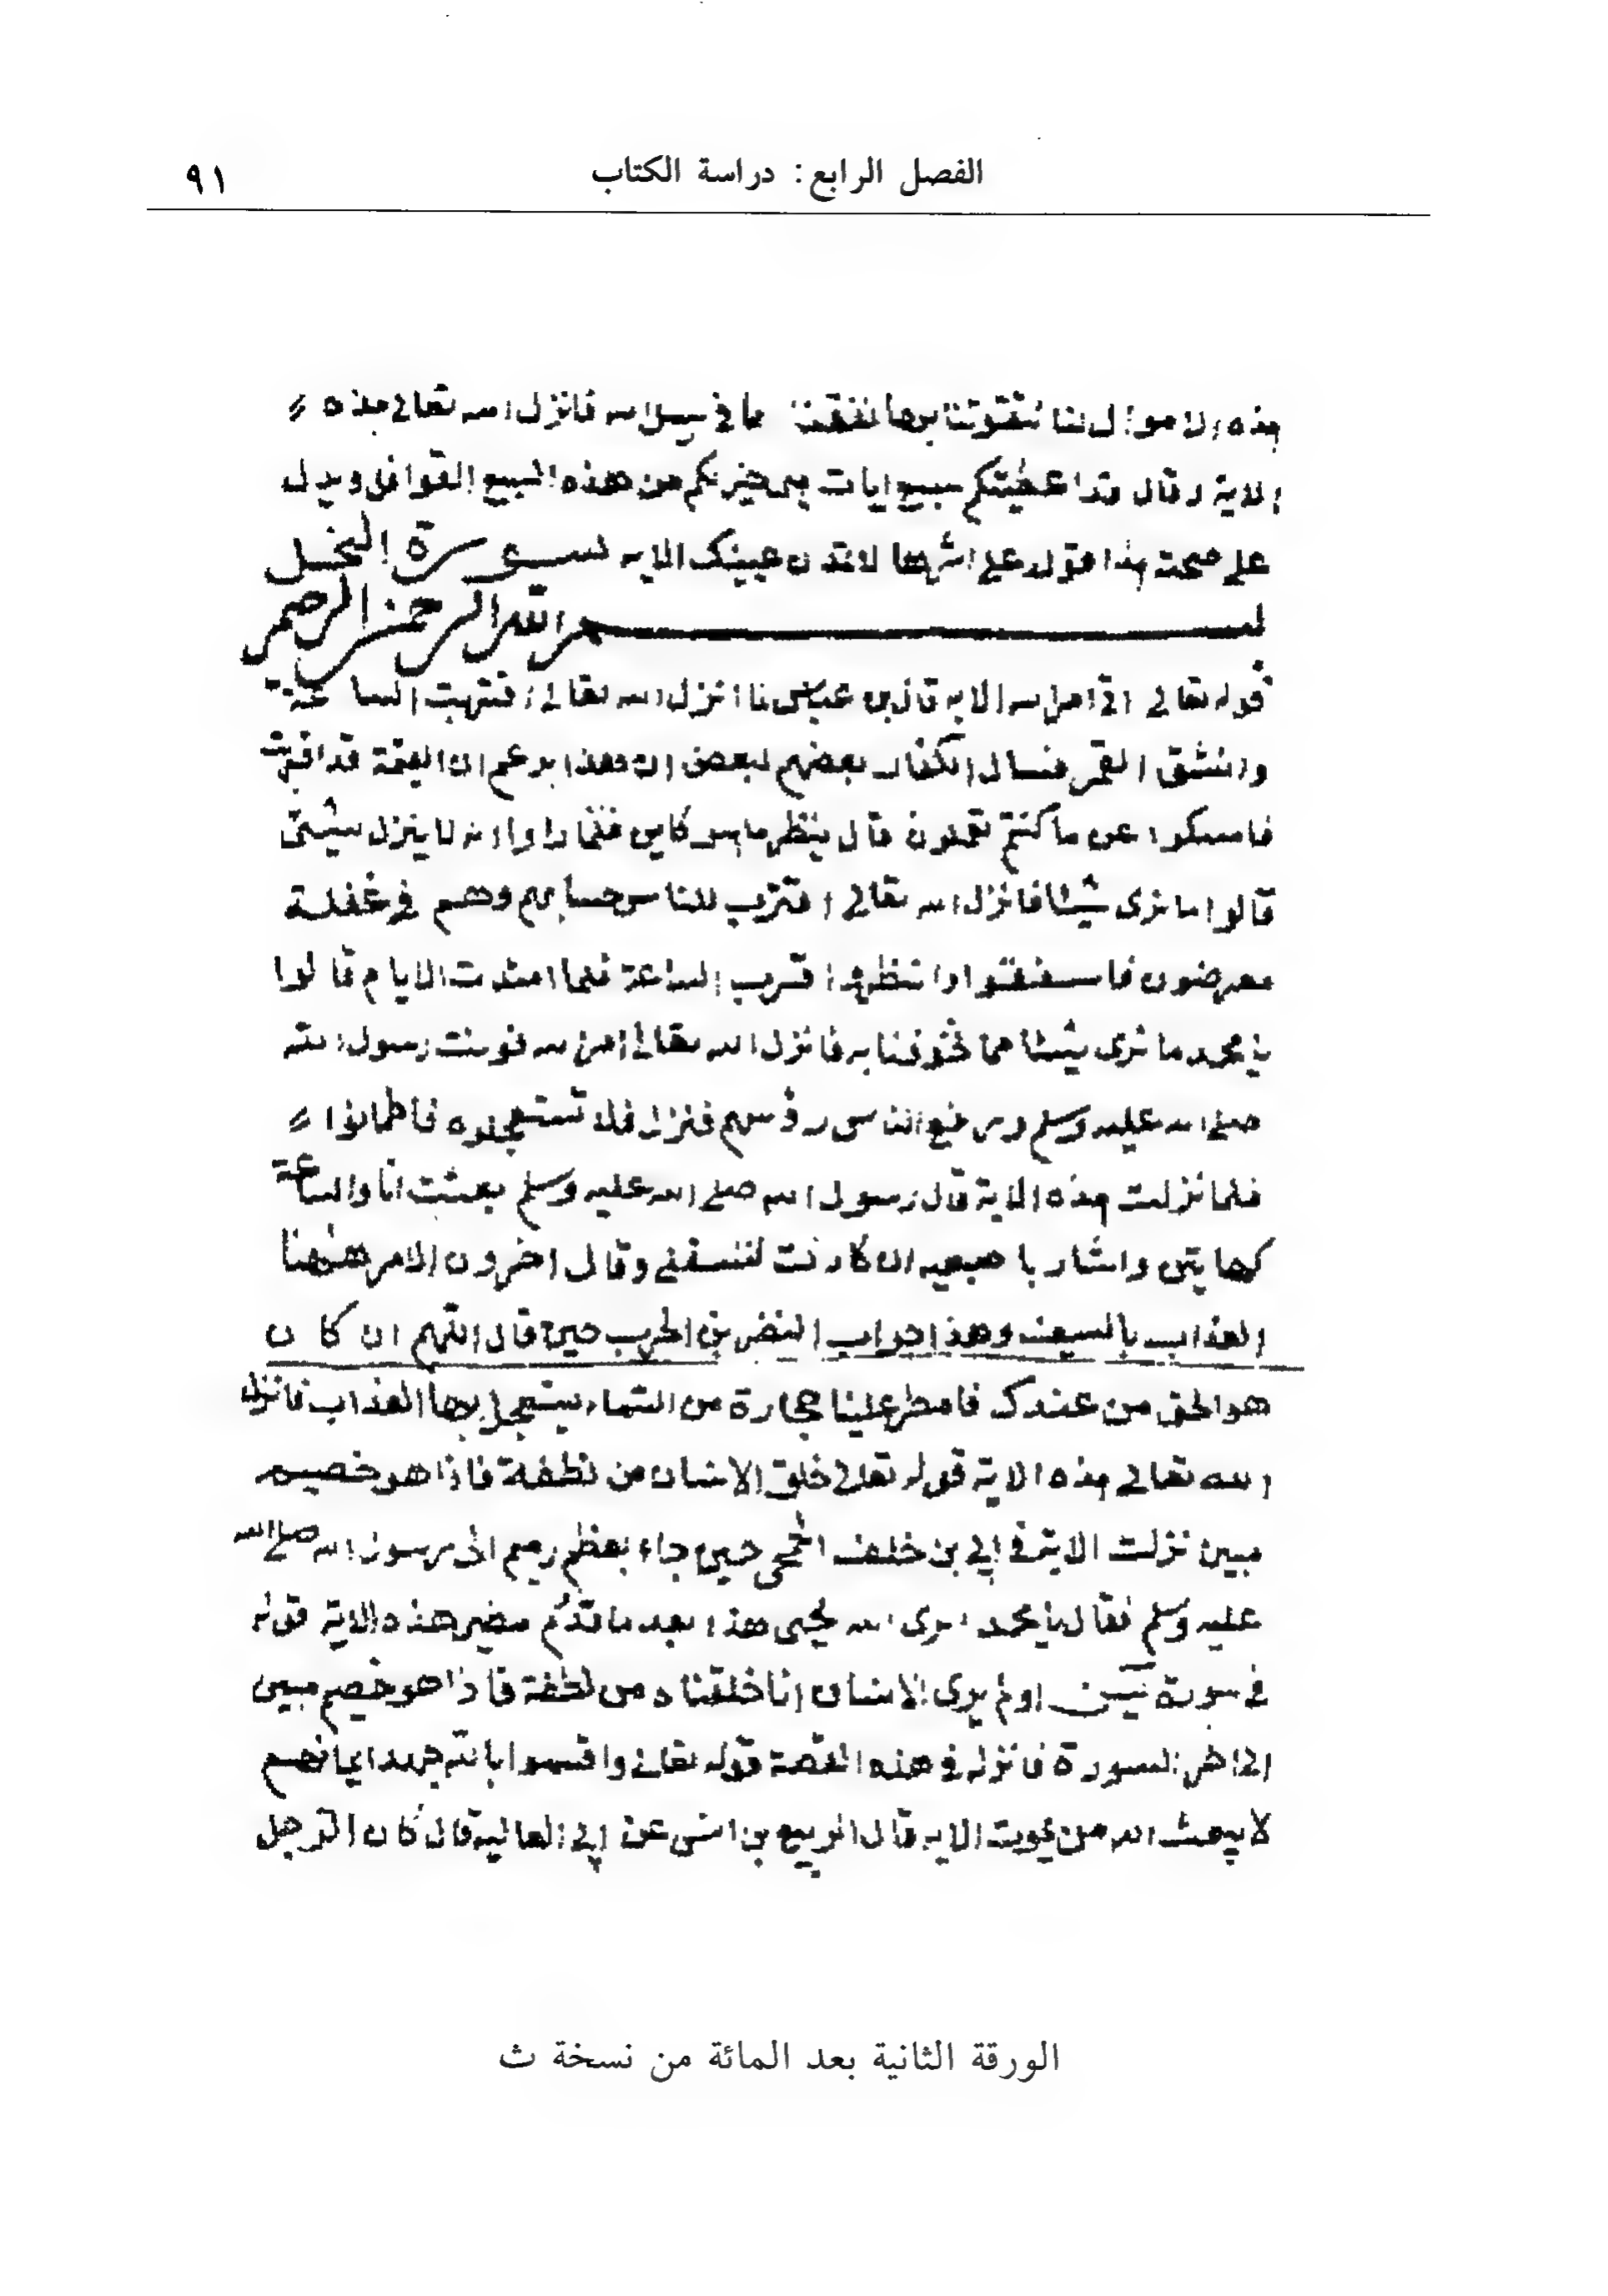 الفصل الرابع: دراسة الكتاب
٩١
هذه الاموال لنا نتقوتنا بها نفقنا ها في سبيل الله فانزل الله تعالى هذه
الاية وقال قد اعطيتكم سبع ايات هي خير لكم من هذه السبع القوافل ويدل
على صحة هذا قوله على اثرها لا تمدن عينيك الايه ســورة النحل
بسم الله الرحمن الرحيم
قوله تعالى اتى امر الله الايه قال بن عباس لما انزل الله تعالى اقتربت الساعة
وانشق القمر فسال الكفار بعضهم لبعض ان هذا يزعم ان القيمة قد اقتربت
فامسكوا عن ما كنتم تعملون قال ينظر ما هو كاين فلما راوا انه لا ينزل شيئ
قالوا ما نرى شيئا فانزل الله تعالى اقترب للناس حسابهم وهم في غفلة
معرضون فاسفقوا وانتظروا قرب الساعة فلما امتدت الايام قالوا
يا محمد ما نرى شيئا مما تخوفنا به فانزل الله تعالى امر الله فوثبت رسول الله
صلى الله عليه وسلم ورفع الناس رؤسهم فنزل فلا تستعجلوه فاطمانوا
فلما نزلت هذه الاية قال رسول الله صلى الله عليه وسلم بعثت انا والساعة
كهاتين واشار باصبعيه ان كادت لتسبقني وقال اخرون الامر ههنا
العذاب بالسيف وهذا جواب النضر بن الحرب حين قال اللهم ان كان
هو الحق من عندك فامطر علينا حجارة من السماء يستعجل بها العذاب فانزل
الله تعالى هذه الاية قوله تعلى خلق الانسان من نطفة فاذا هو خصيم
مبين نزلت الاية في ابي بن خلف الجمحي حين جاء بعظم رميم الى رسول الله صلى الله
عليه وسلم فقال يا محمد اترى الله يحيى هذا بعد ما قد رم نضير هذه الاية قوله
في سورة يس اولم يرى الانسان انا خلقناه من نطفة فاذا هو خصيم مبين
الى اخر السورة فانزله في هذه القصة قوله تعالى واقسموا بالله جهد ايمانهم
لا يبعث الله من يموت الايه قال الربيع بن انس عن ابي العالية قال كان الرجل
الورقة الثانية بعد المائة من نسخة ث